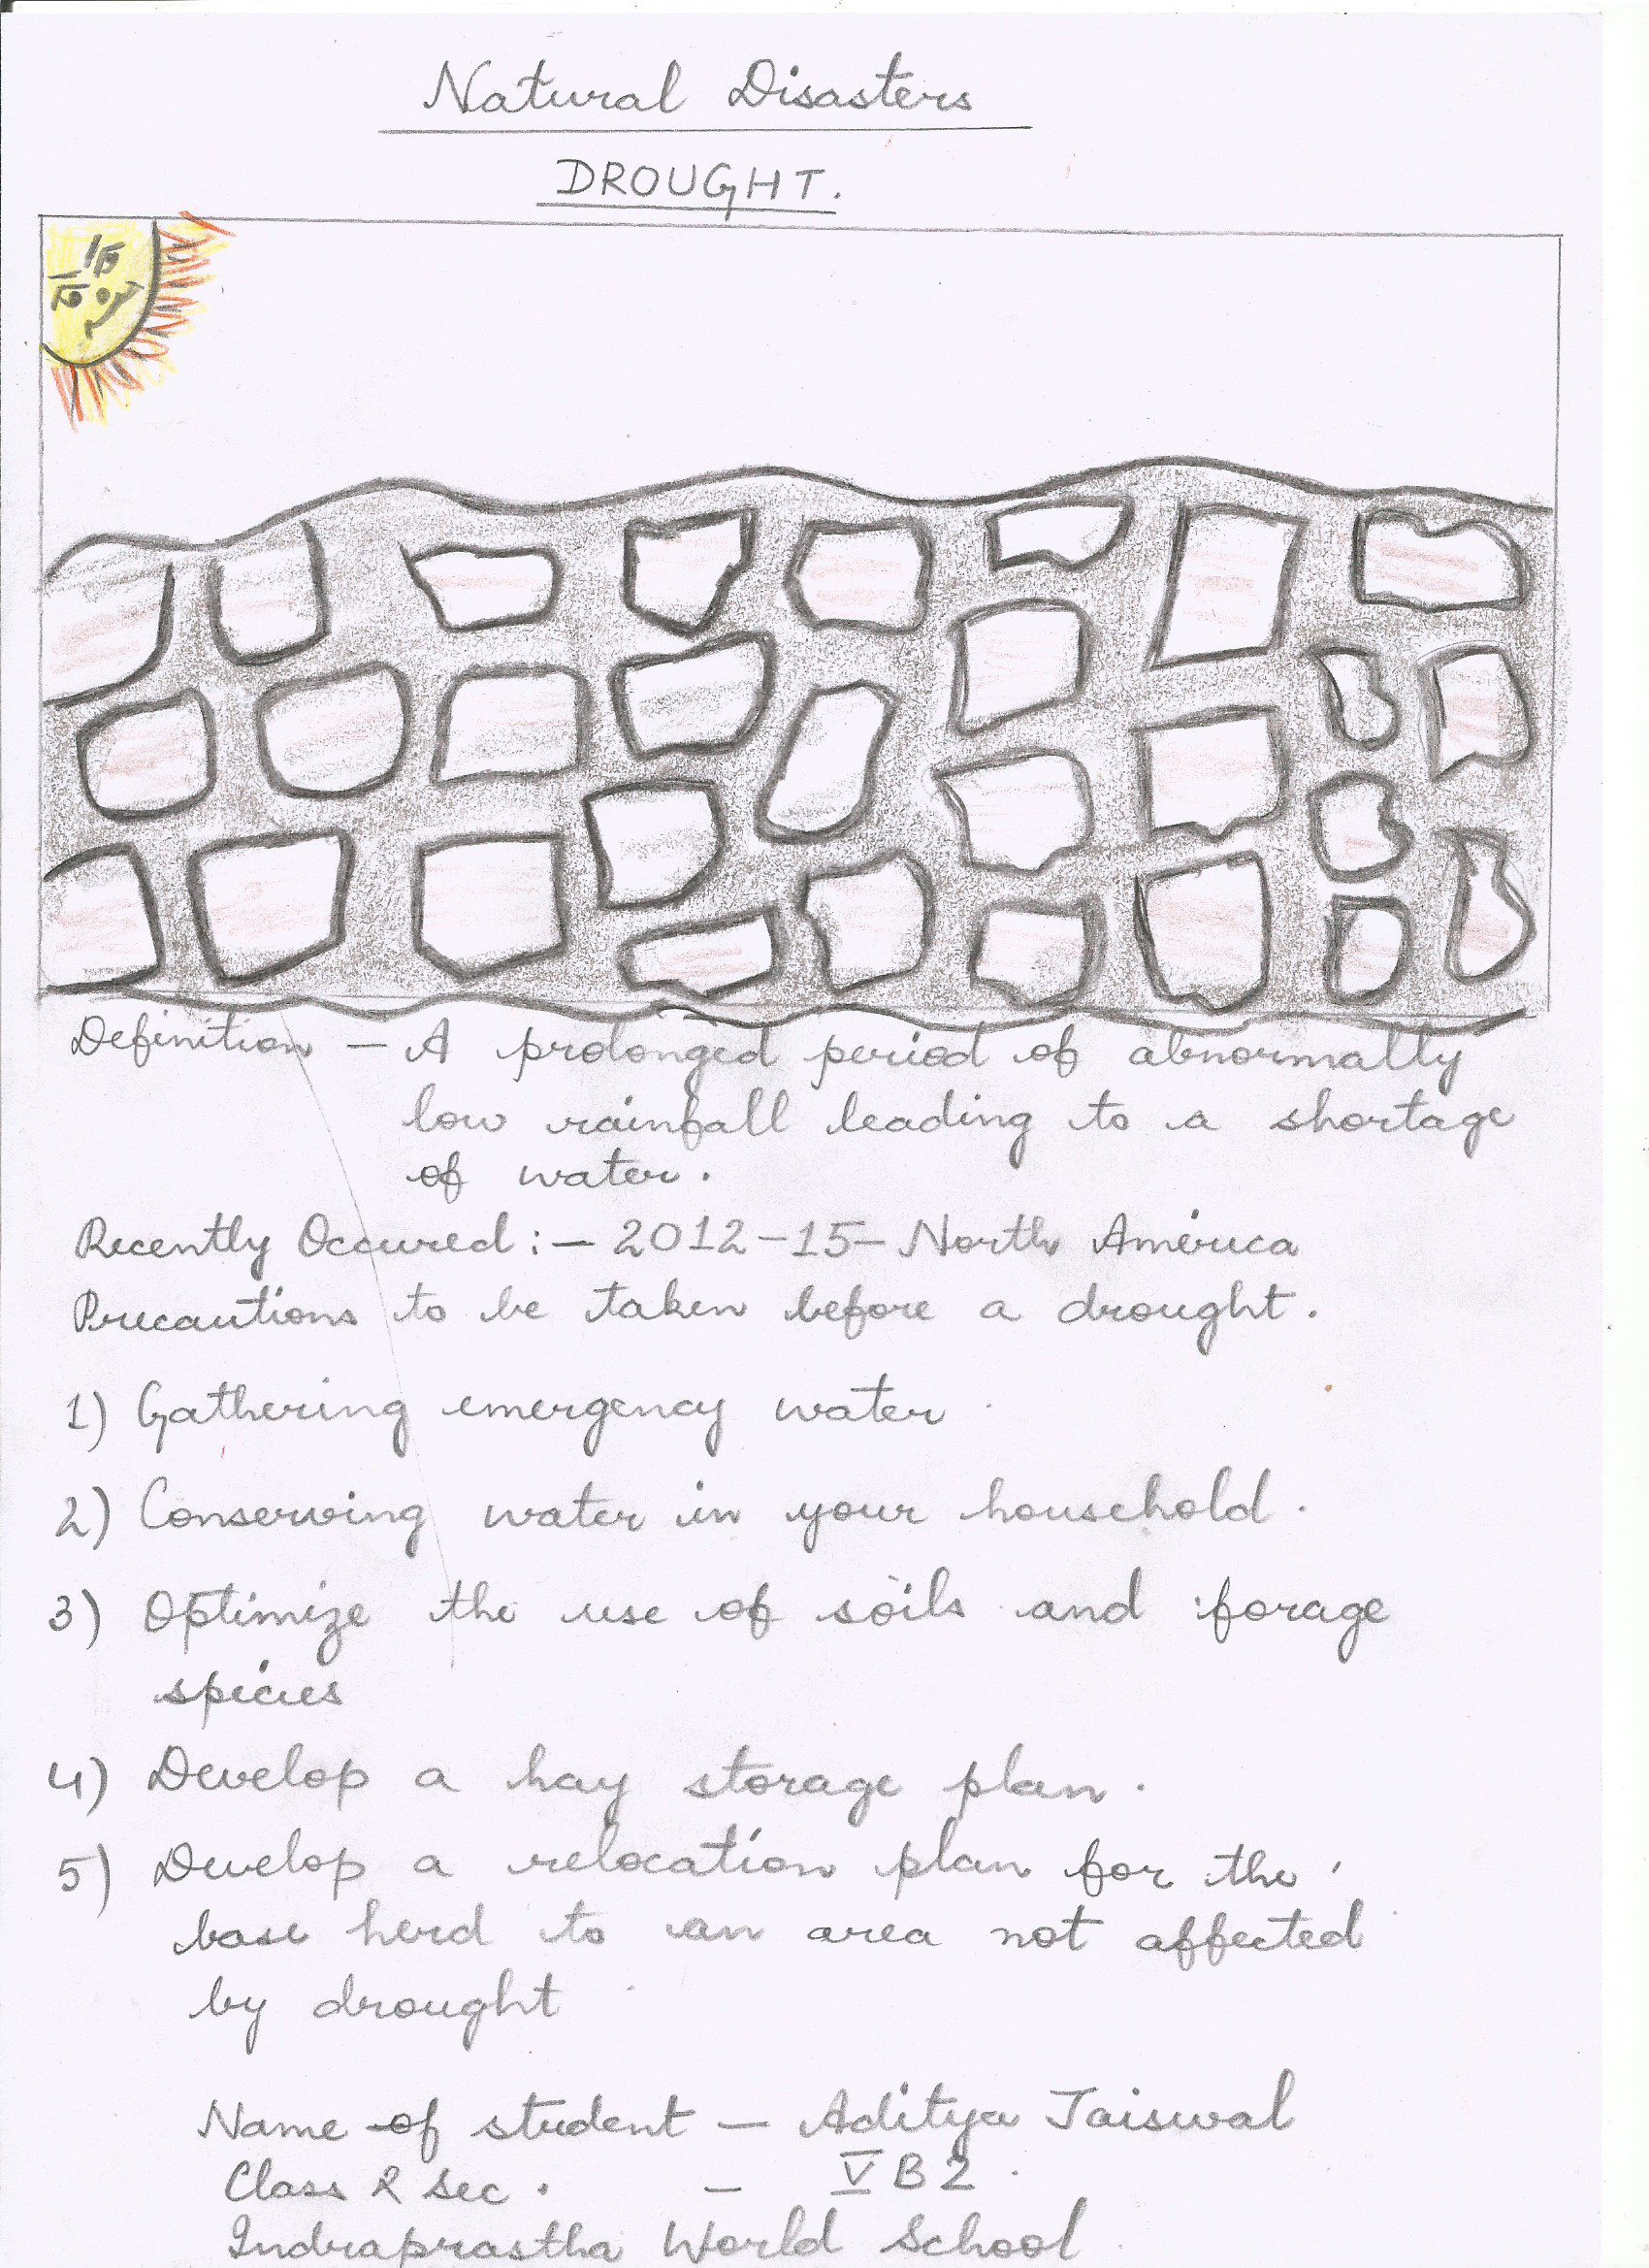 Natural Disasters
DROUGHT.
Definition – A prolonged period of abnormally
low rainfall leading to a shortage
of water.
Recently Occured :– 2012–15– North America
Precautions to be taken before a drought.
1) Gathering emergency water
2) Conserving water in your household.
3) Optimize the use of soils and forage
species
4) Develop a hay storage plan.
5) Develop a relocation plan for the
base herd to an area not affected
by drought
Name of student – Aditya Jaiswal
Class & Sec. – V B2
Indraprastha World School